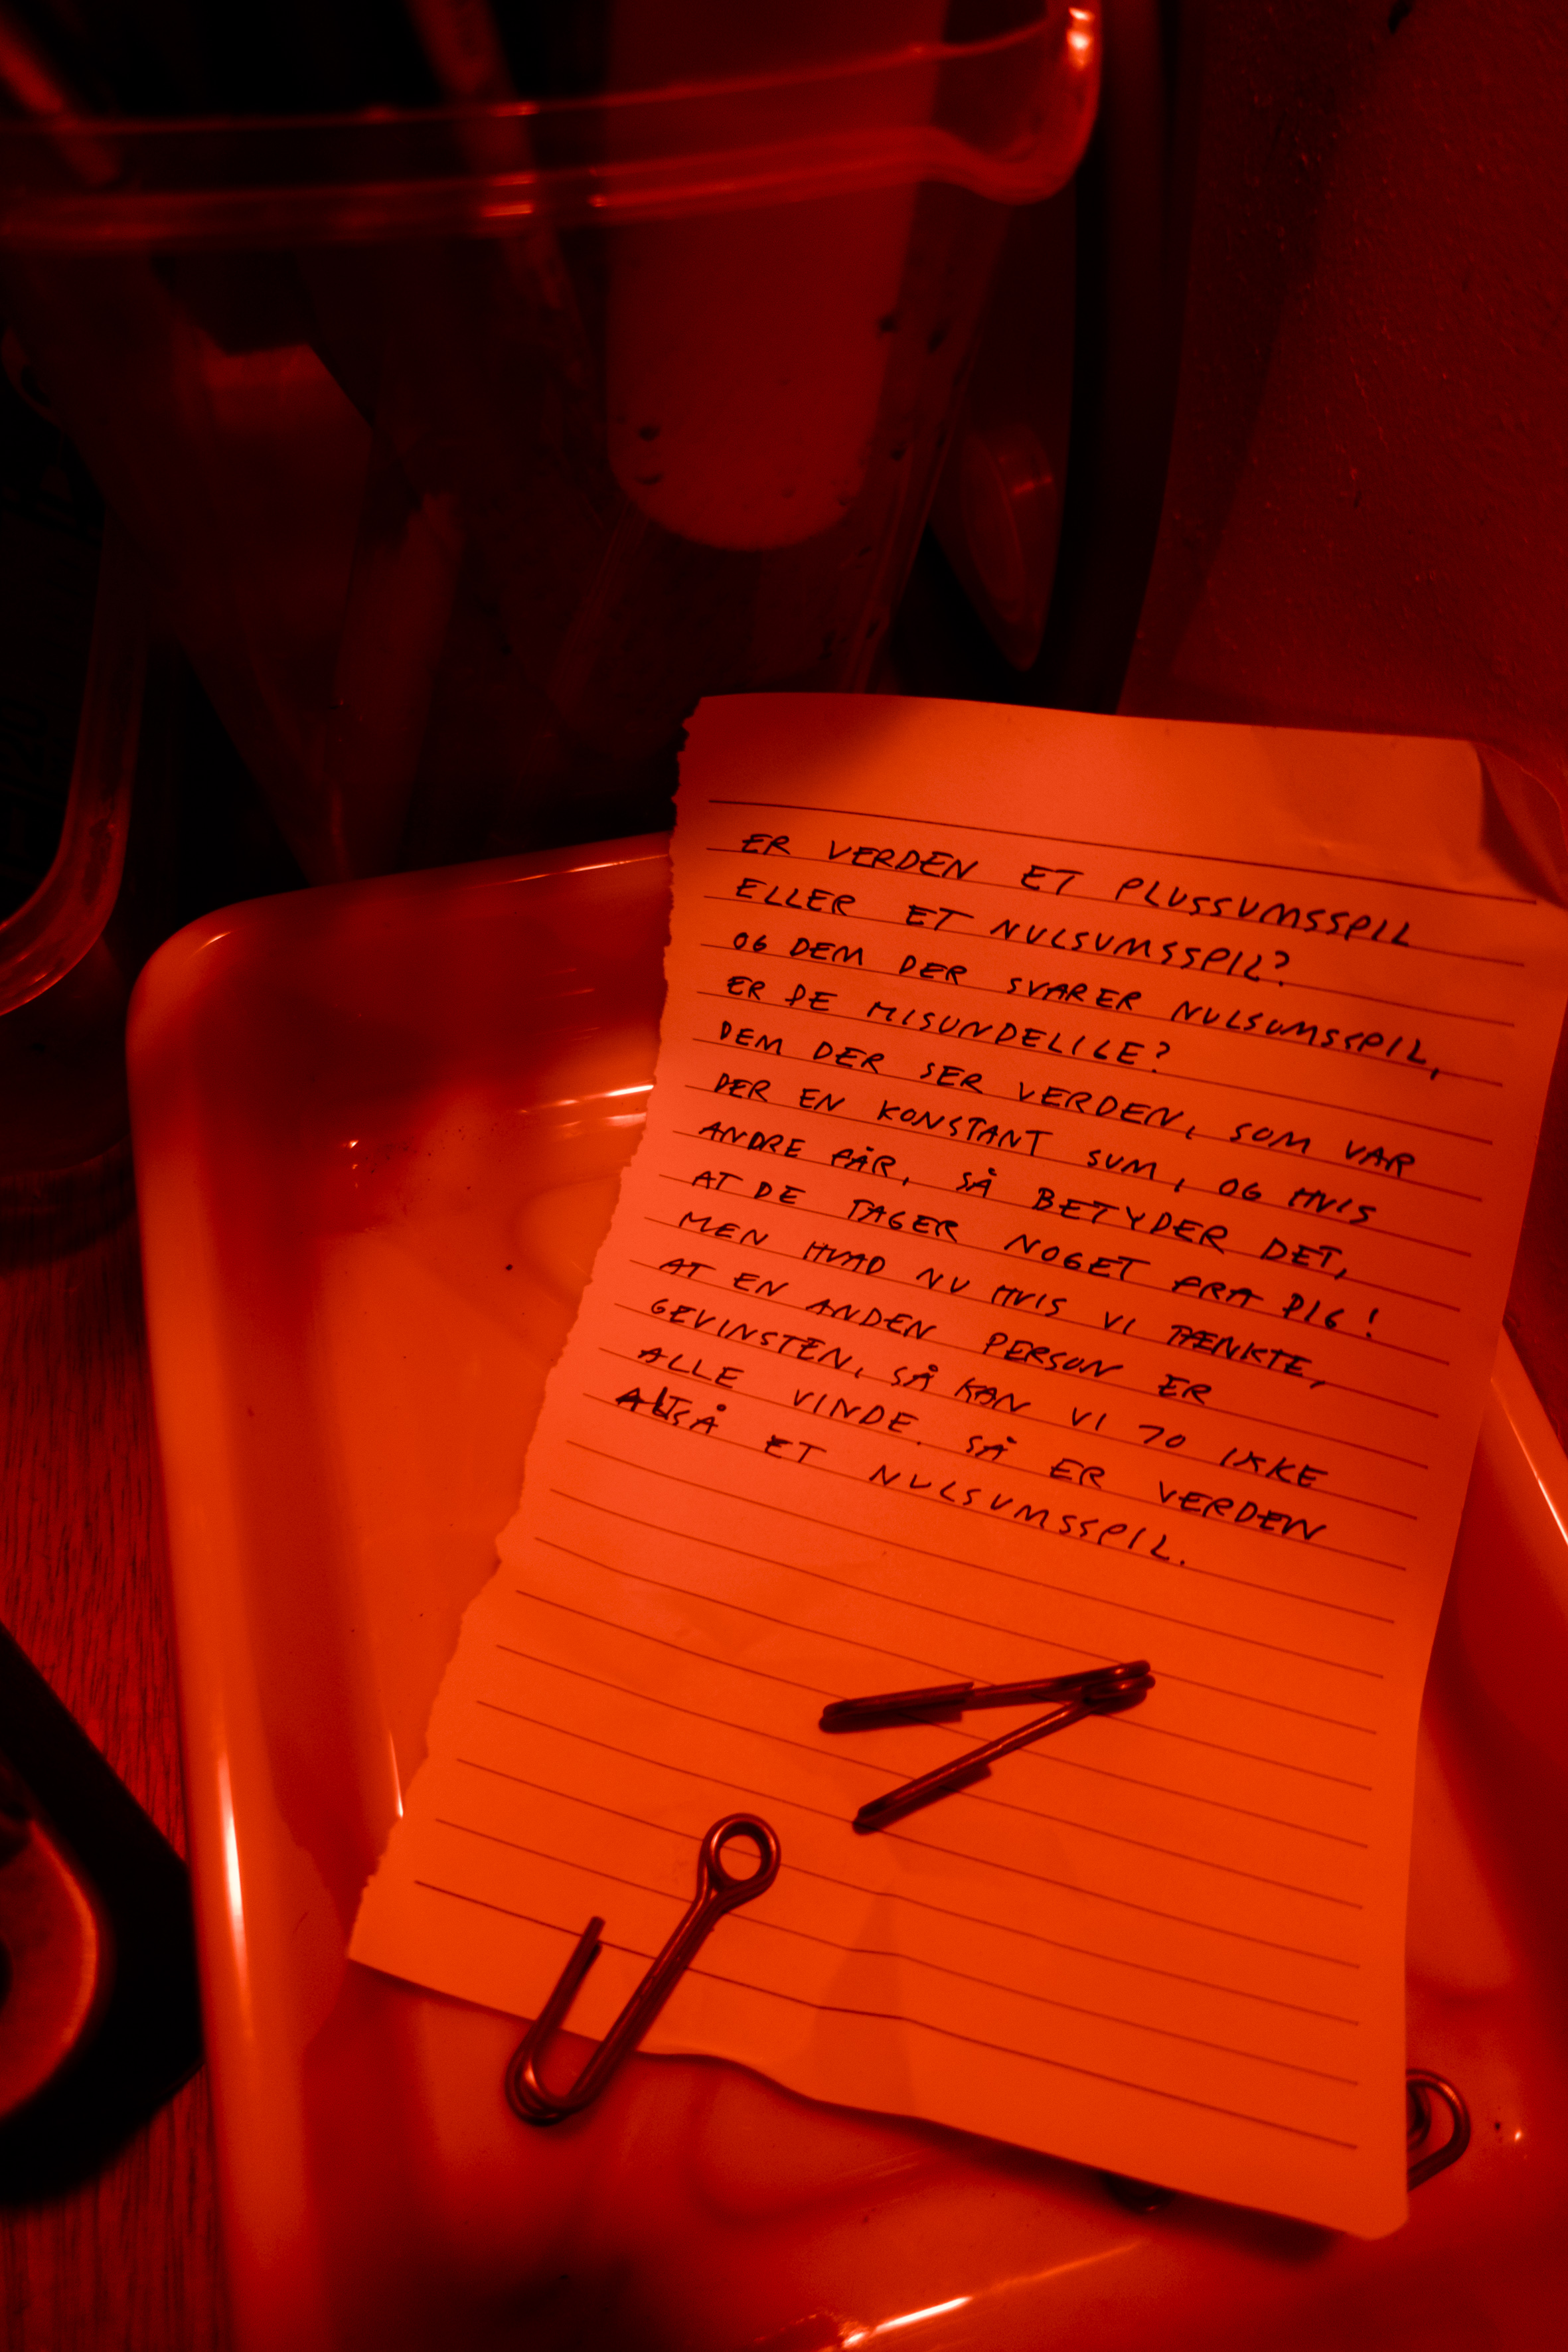 ER VERDEN ET PLUSSUMSSPIL
ELLER ET NULSUMSSPIL?
OG DEM DER SVARER NULSUMSSPIL,
ER DE MISUNDELILE?
DEM DER SER VERDEN, SOM VAR
DER EN KONSTANT SUM, OG HVIS
ANDRE FÅR, SÅ BETYDER DET,
AT DE TAGER NOGET FRA DIG!
MEN HVAD NU HVIS VI TÆNKTE,
AT EN ANDEN PERSON ER
GEVINSTEN, SÅ KAN VI JO IKKE
ALLE VINDE. SÅ ER VERDEN
ALTSÅ ET NULSUMSSPIL.